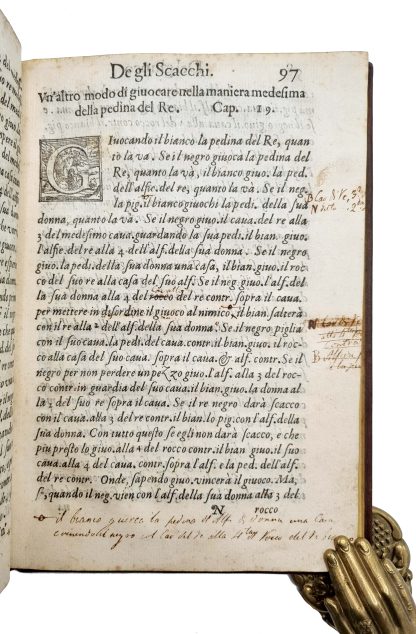 De gli Scacchi. 97
Vn'altro modo di giuocare nella maniera medesima
della pedina del Re. Cap. 19.
GIuocando il bianco la pedina del Re, quan
to la và. Se il negro giuoca la pedina del
Re, quanto la và, il bianco giuo. la ped.
dell'alfie. del re, quanto la và. Se il neg.
la pig. il bianco giuochi la pedi. della sua
donna, quanto la và. Se il negro giuo. il caua. del re alla
3 del medesimo caua. guardando la sua pedi. il bian. giuo.
l'alfie del re alla 4 dell'alf. della sua donna. Se il negro
giuo. la pedi. della sua donna una casa, il bian. giuo. il roc
co del suo re alla casa del suo alf. Se il neg. giuo. l'alf. del
la sua donna alla 4 del rocco del re contr. sopra il caua.
per mettere in disordine il giuoco al nimico, il bian. salterà
con il re alla 2 dell'alf. della sua donna. Se il negro piglia
con il suo caua. la pedi. del caua. contr. il bian. giuo. il roc
co alla casa del suo caua. sopra il caua. & alf. contr. Se il
negro per non perdere un pezzo giuo. l'alf. alla 3 del roc
co contr. in guardia del suo caua. il bian. giuo. la donna al
la 2 del suo caua. Se il re negro darà scacco
con il caua. alla 3 del re contr. il bian. lo pig. con l'alf. della
sua donna. Con tutto questo se egli non darà scacco, e che
piu presto lo giuo. alla 4 del rocco contr. il bian. giuo. il suo
caua. alla 4 del caua. contr. sopra l'alf. e la ped. dell'alf.
del re contr. Onde, sapendo giuo. vincerà il giuoco. Ma,
se, quando il neg. vien con l'alf. della sua donna alla 3 del
N rocco
il bianco
la pedina
Alf. di Donna una Casa
alla 4